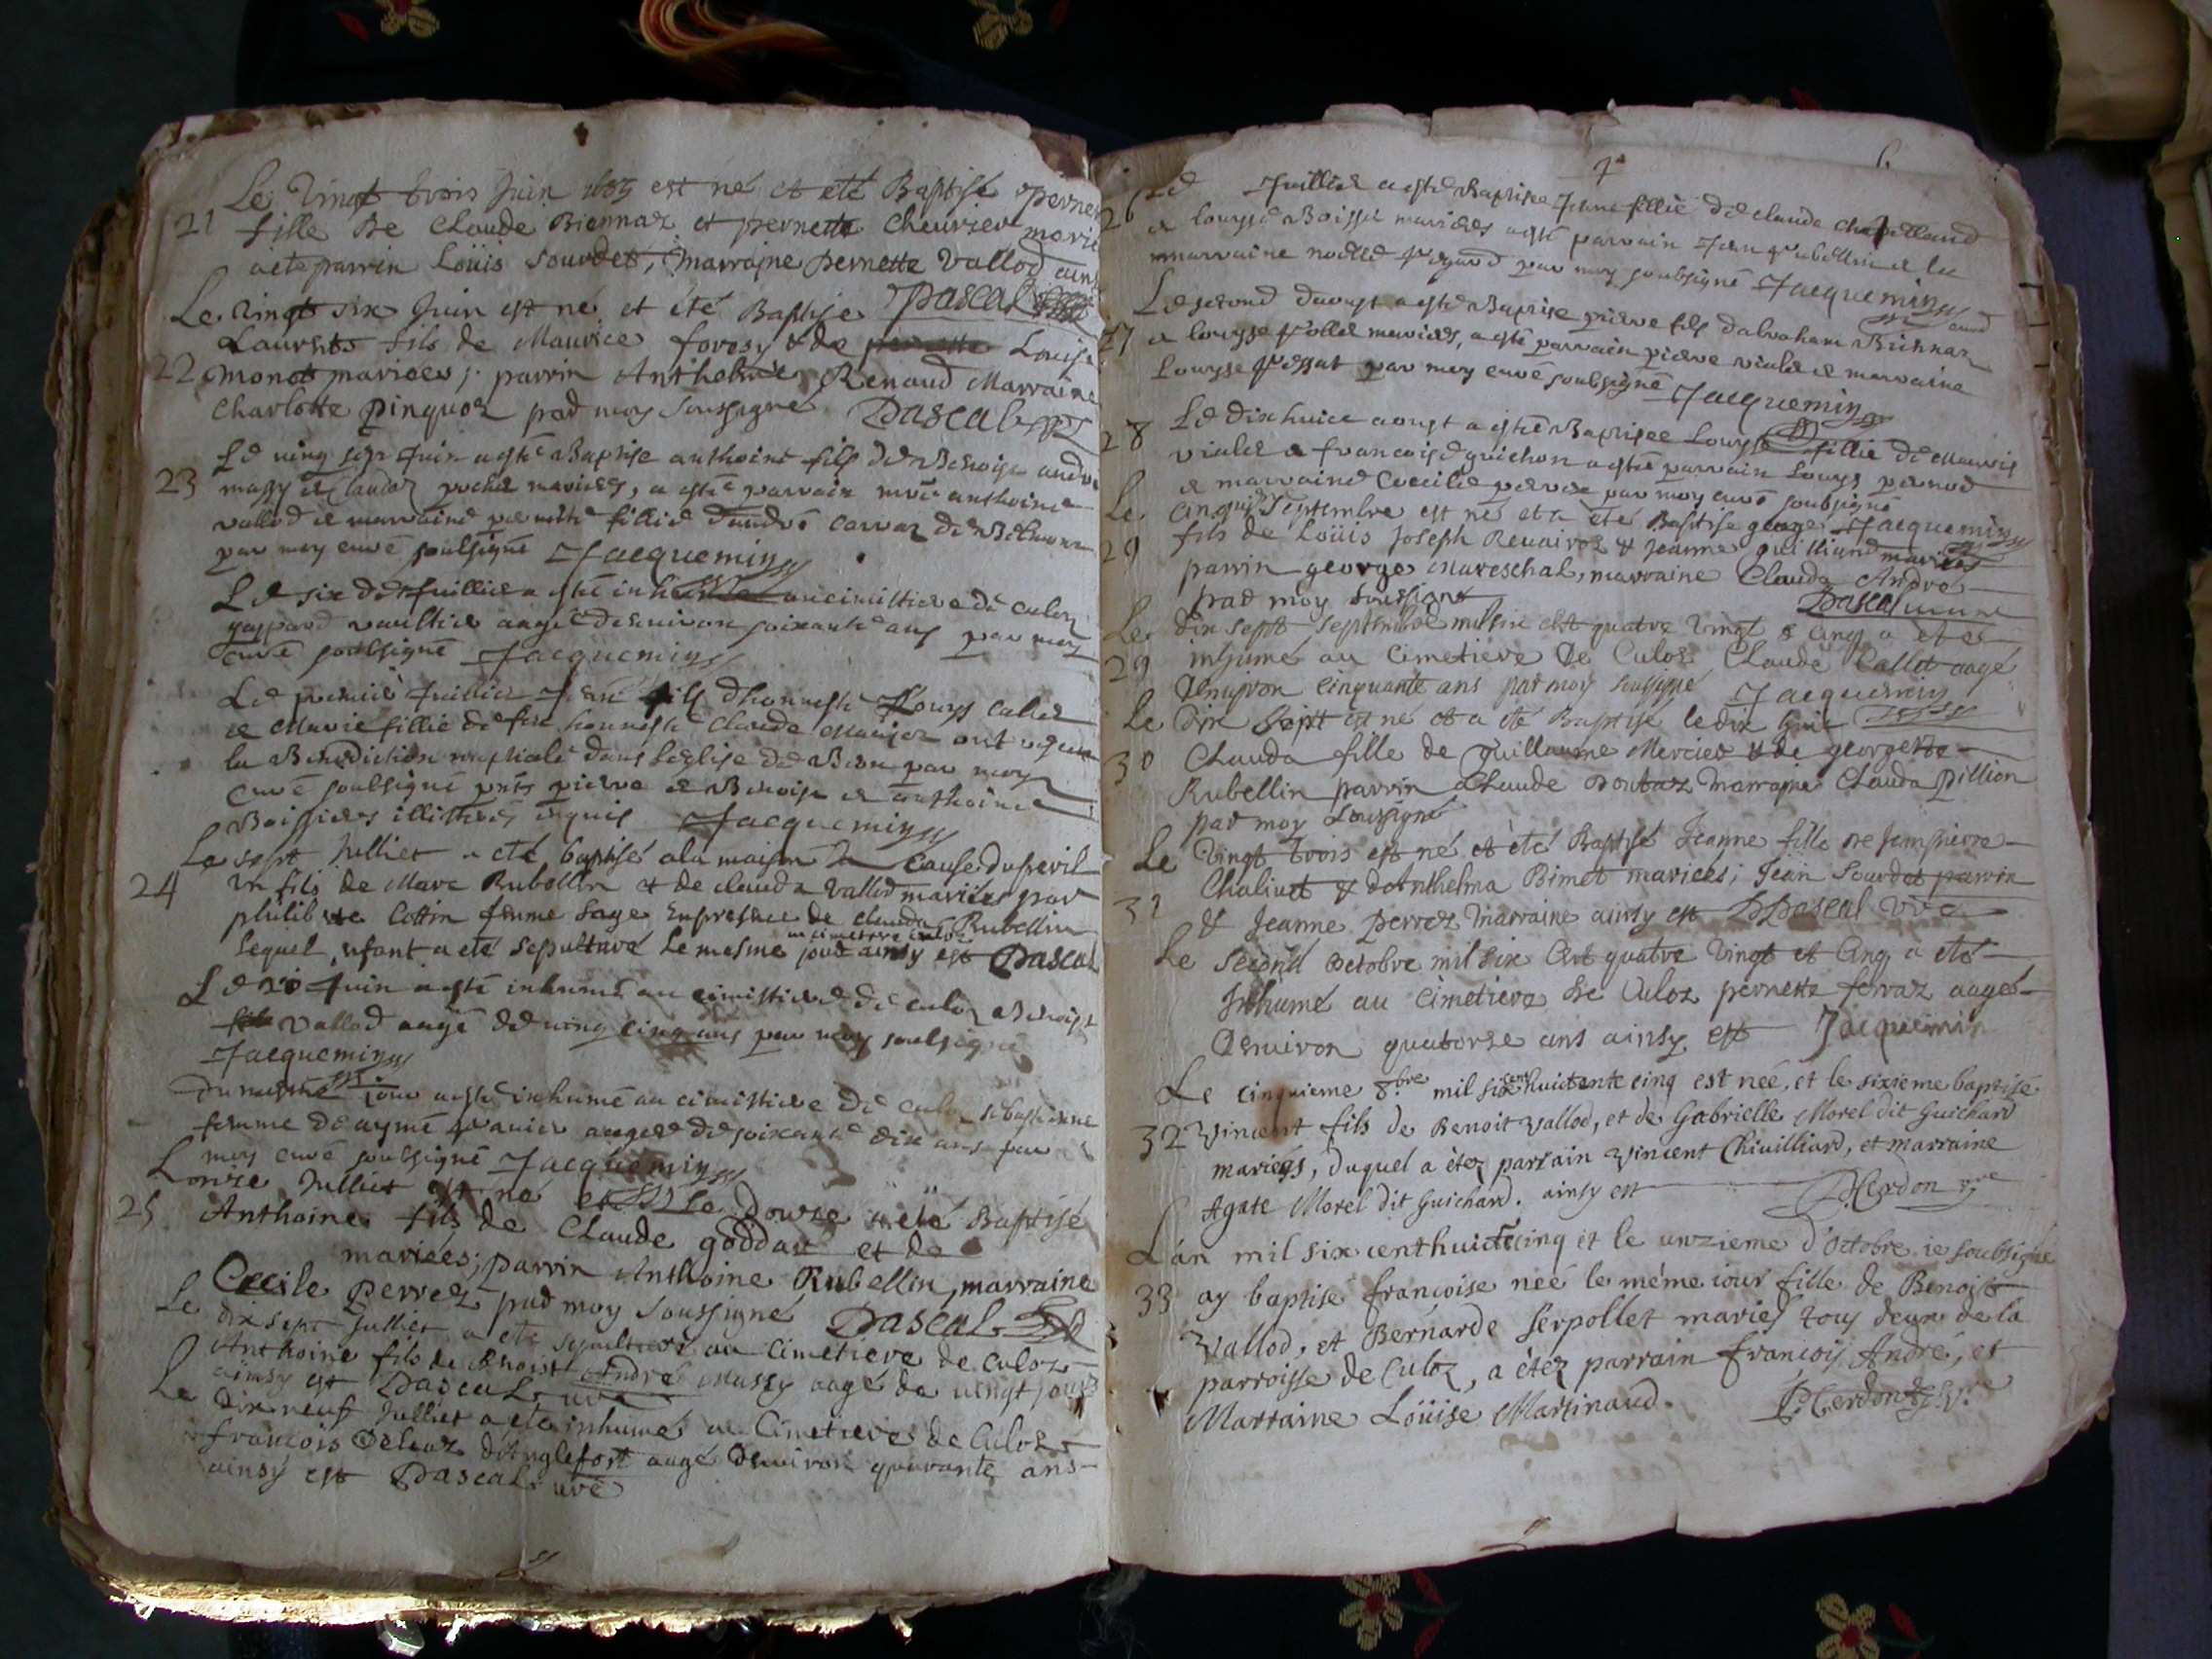 Le Vingt trois Juin 1685 est né et eté Baptisé perne
21 fille De Claude Biennaz et pernette Cheurier mariés
a eté parrin Loüis Sourdet, Marrajne pernette Vallod
Le Vingt six Juin est né et eté Baptise Pascal
Laurents fils de Maurice forosy & de Louise
22 monot mariées; parrin Anthelme Renaud Marraine
Charlotte pinquoz par moy soussigné Pascal
Le ving sept Juin a esté Baptise anthoine fils de Benoist andre
23 massy et Claudaz mariees, a esté parrain anthoine
vallod et marraine pernette fillie dandré carraz de
par moy curé soubsigné Jacquemin
Le six de Juillier a esté inhumé au cimistiere de culoz
gaspard aagé denviron soixante ans par moy
curé soubsigné Jacquemin
Le premier Juillier fils dhonneste Louys Callet
et Marie fillie de feu honneste Claude ont
la Benediction nuptiale dans leglise de Beon par moy
curé soubsigné pnts pierre et Benoist et anthoine
Boissier illitterés Jacquemin
Le sept Julliet a eté baptisé a la maison a cause du peril
24 un fils de Marc Rubellin et de clauda Vallod mariées par
philiberte Cottin femme sage En presence de clauda Rubellin
au cimetiere culoz
lequel enfant a eté sepulturé le mesme jour ainsy est Pascal
Le Juin a esté inhumé au cimistiere de culoz Benoist
vallod aagé de ving cinq ans par moy soubsigné
Jacquemin
Du mesme jour a esté inhumé au cimistiere de culoz sebastienne
femme de aymé aagee de soixante dix ans par
moy curé soubsigné Jacquemin
L'onze Julliet est né et le douze a eté Baptisé
25 Anthoine fils de Claude goddar et de
mariees; parrin Anthoine Rubellin, marraine
Cecile Perret par moy soussigné Pascal
Le dix sept Julliet a eté sepulturé au Cimetiere de Culoz
Anthoine fils de Benoist André Massy aagé de vingt jours
ainsy est Pascal
Le Dix neuf Julliet a eté inhumé au Cimetiere de Culoz
francois Deleaz d'Anglefort aagé Denviron quarante ans
ainsy est Pascal
26 Le Juillier a esté Baptisee fillie de claude Chapelland
et louyse Boissie mariees a esté parrain Jean Rubellin et la
marraine par moy soubsigné Jacquemin curé
Le second daoust a esté Baptise pierre fils dabraham Biennaz
27 et louysse mariees, a esté parrain pierre vialet et marraine
Louysse par moy curé soubsigné Jacquemin
Le dix huict aoust a esté Baptisee Louysse fillie de Mauris
28 vialet et francoise guichon a esté parrain Louys pernod
et marraine Cecille perret par moy curé soubsigné
Le cinq Septembre est né et a eté Baptise george Jacquemin
29 fils de Loüis Joseph Reuairoz & Jeanne guilliand mariées
parrin george Mareschal, marraine Clauda André
par moy soussigné Pascal
Le dix sept Septembre mil six cent quatre Vingt & cinq a eté
29 inhumé au Cimetiere De Culoz Claude Callet aagé
Denviron Cinquante ans par moy soussigné Jacquemin
Le Dix sept est né et a eté Baptisé le dix huit
30 Clauda fille de guillaume Mercier & de georgette
Rubellin parrin Claude Doutaz Marrajne Clauda pillion
par moy soussigné
Le Vingt trois est né et eté Baptisé Jeanne fille De Jempierre
31 Chaliuet & d'Anthelma Bimet mariées; Jean Sourdet parrin
& Jeanne perret Marraine ainsy est Pascal
Le Second Octobre mil six Cent quatre Vingt et Cinq a eté
Inhumé au Cimetiere De Culoz pernette ferraz aageé
Denviron quatorse ans ainsy est Jacquemin
Le cinquieme 8.bre mil six cent huictante cinq est neé, et le sixieme baptisé
32 Vincent fils de Benoit Vallod, et de Gabrielle Morel dit Guichard
mariéz, duquel a étez parrain Vincent Chiuilliard, et marraine
Agate Morel dit Guichard. ainsy est P. Cerdon
L'an mil six cent huictecinq et le unzieme d'Octobre ie soubsigné
33 ay baptise francoise neé le méme iour fille de Benoist
Vallod, et Bernarde Serpollet mariés tous deux de la
parroisse de Culoz, a étez parrain francois André, et
Marraine Loüise Martinand. P. Cerdon